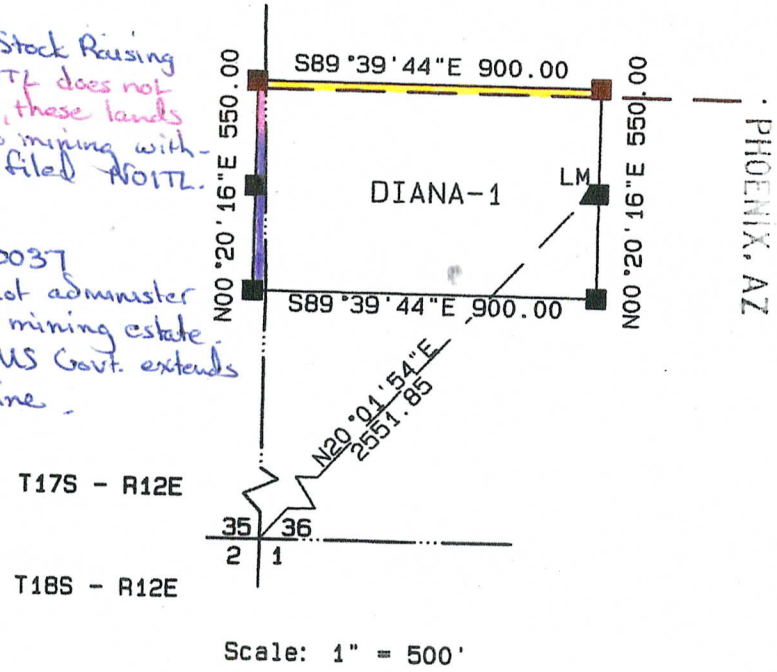 Stock Raising
TL does not
, these lands
mining with-
filed NOITL.
0037
ot administer
mining estate.
US Govt. extends
ine.
S89°39'44"E 900.00
N00°20'16"E 550.00
DIANA-1
LM
N00°20'16"E 550.00
S89°39'44"E 900.00
N20°01'54"E
2551.85
PHOENIX, AZ
T17S - R12E
35 36
2 1
T18S - R12E
Scale: 1" = 500'